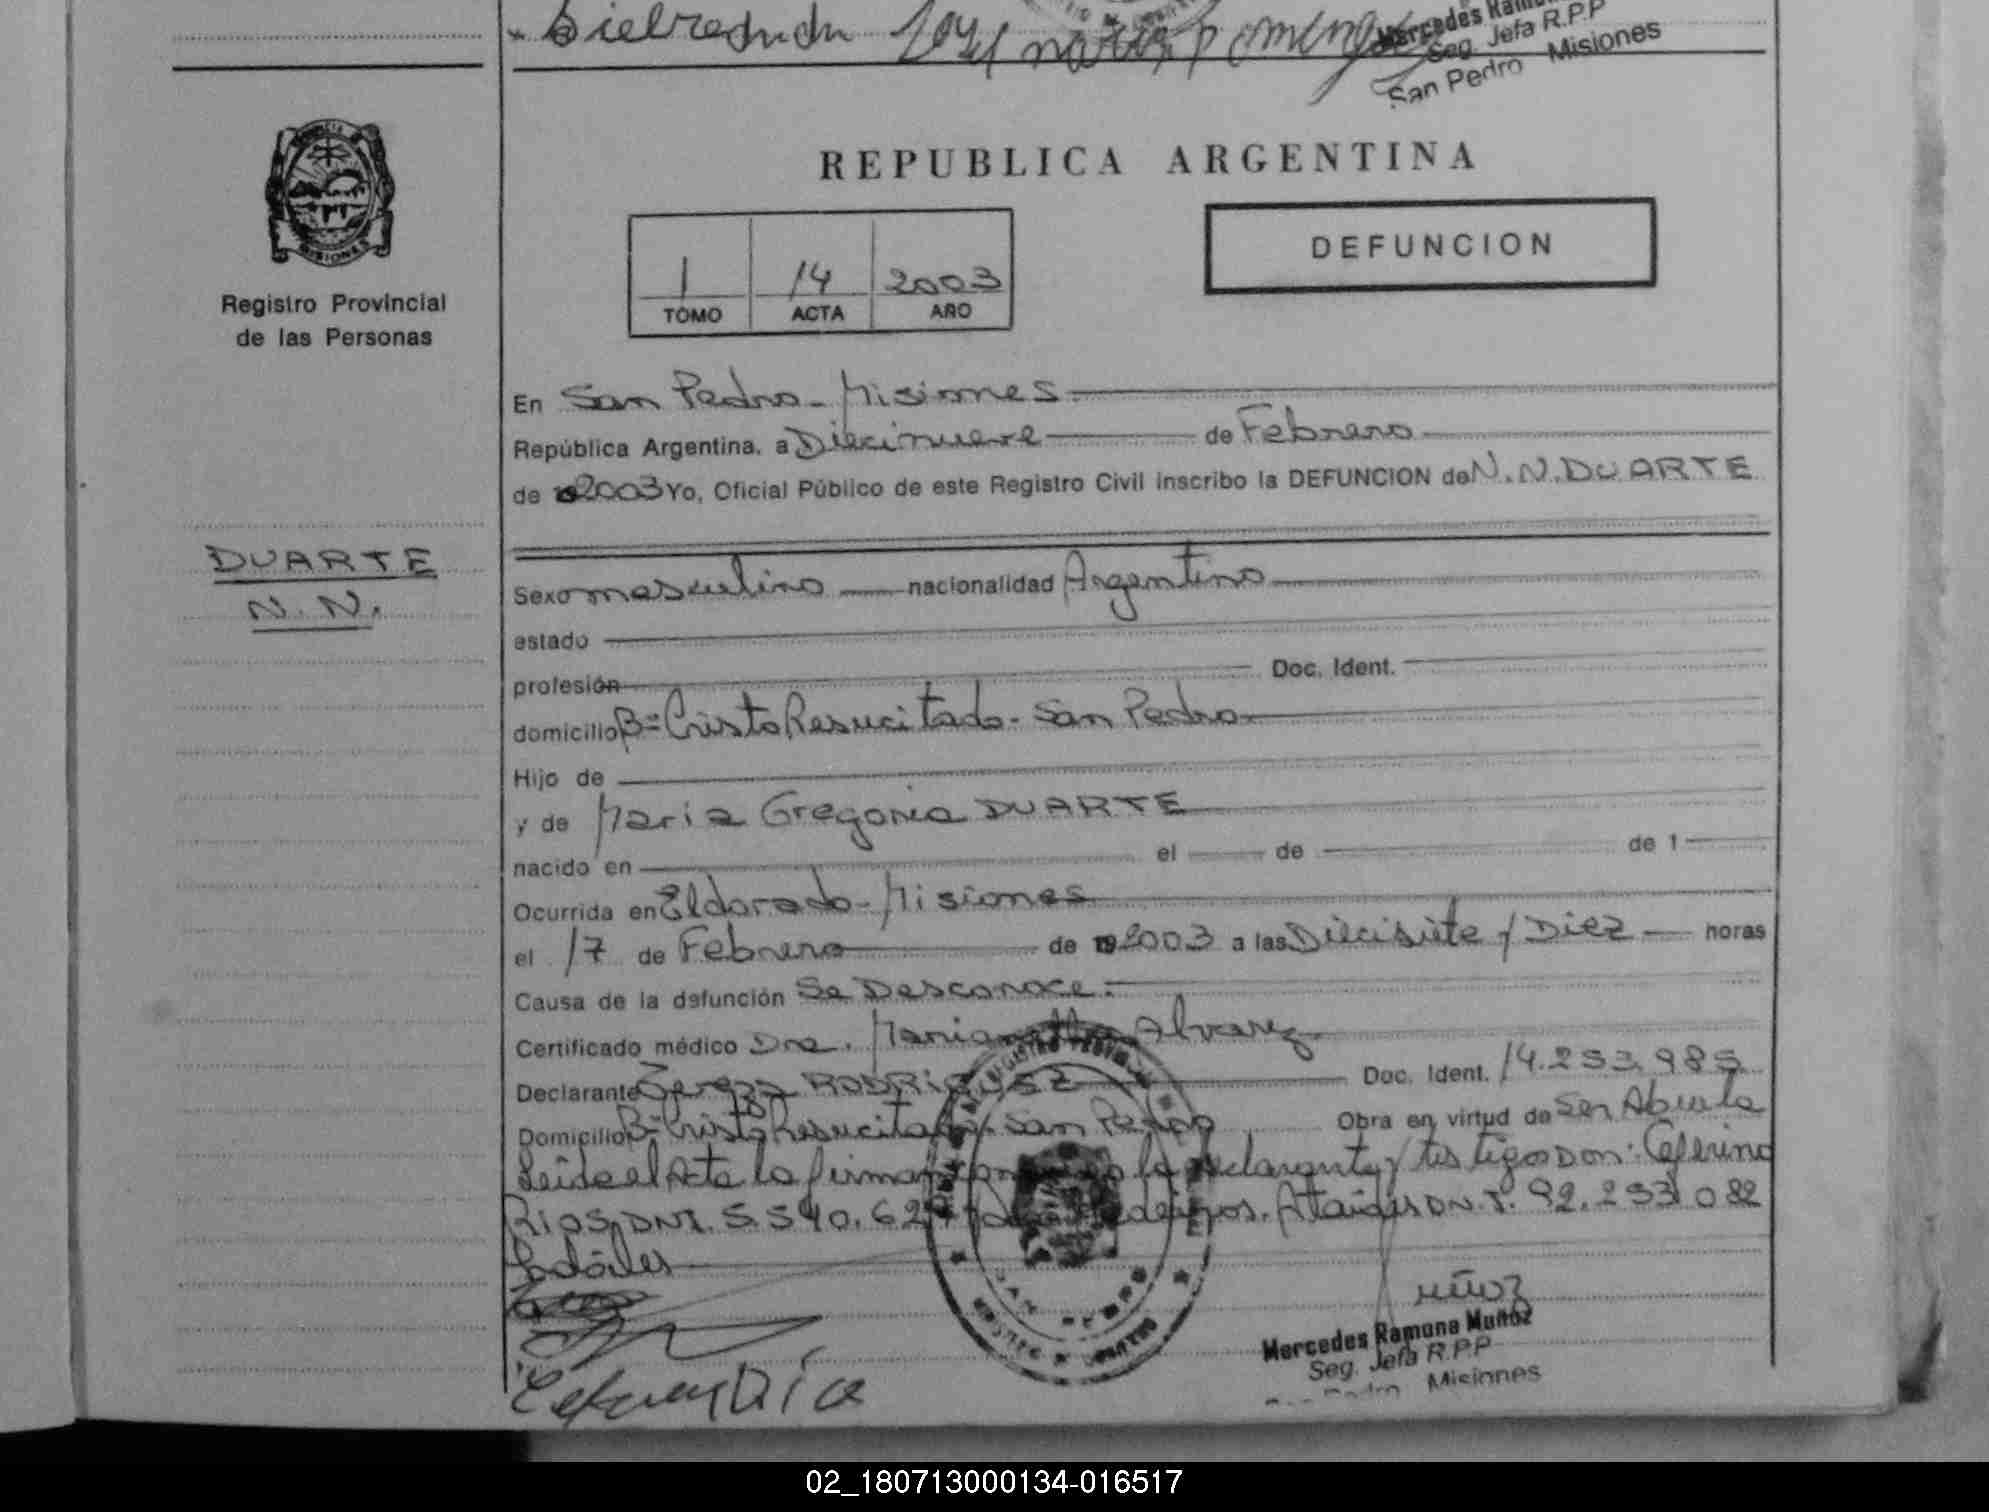 Mercedes Ramo
Seg. Jefa R.P.P
San Pedro Misiones
MISIONES
Registro Provincial
de las Personas
REPUBLICA ARGENTINA
1 14 2003
TOMO ACTA AÑO
DEFUNCION
En San Pedro - Misiones
República Argentina, a Diecinueve de Febrero
de 2003 Yo, Oficial Público de este Registro Civil inscribo la DEFUNCION de N.N. DUARTE
DUARTE
N. N.
Sexo masculino nacionalidad Argentino
estado
profesión Doc. Ident.
domicilio Bº Cristo Resucitado - San Pedro
Hijo de
y de Maria Gregoria DUARTE
nacido en el de de 1
Ocurrida en Eldorado - Misiones
el 17 de Febrero de 2003 a las Diecisiete y Diez horas
Causa de la defunción Se Desconoce.
Certificado médico Dra. Alvarez
Declarante RODRIGUEZ Doc. Ident. 14.253.985
Domicilio Bº Cristo Resucitado San Pedro Obra en virtud de Ser Abuela
Leída el Acta la firman la declarante y testigos Don: Ceferino
Rios DNI. 5.540.62 Ataides DN.I. 92.253.082
Muñoz
Mercedes Ramona Muñoz
Seg. Jefa R.P.P
Misiones
02_180713000134-016517